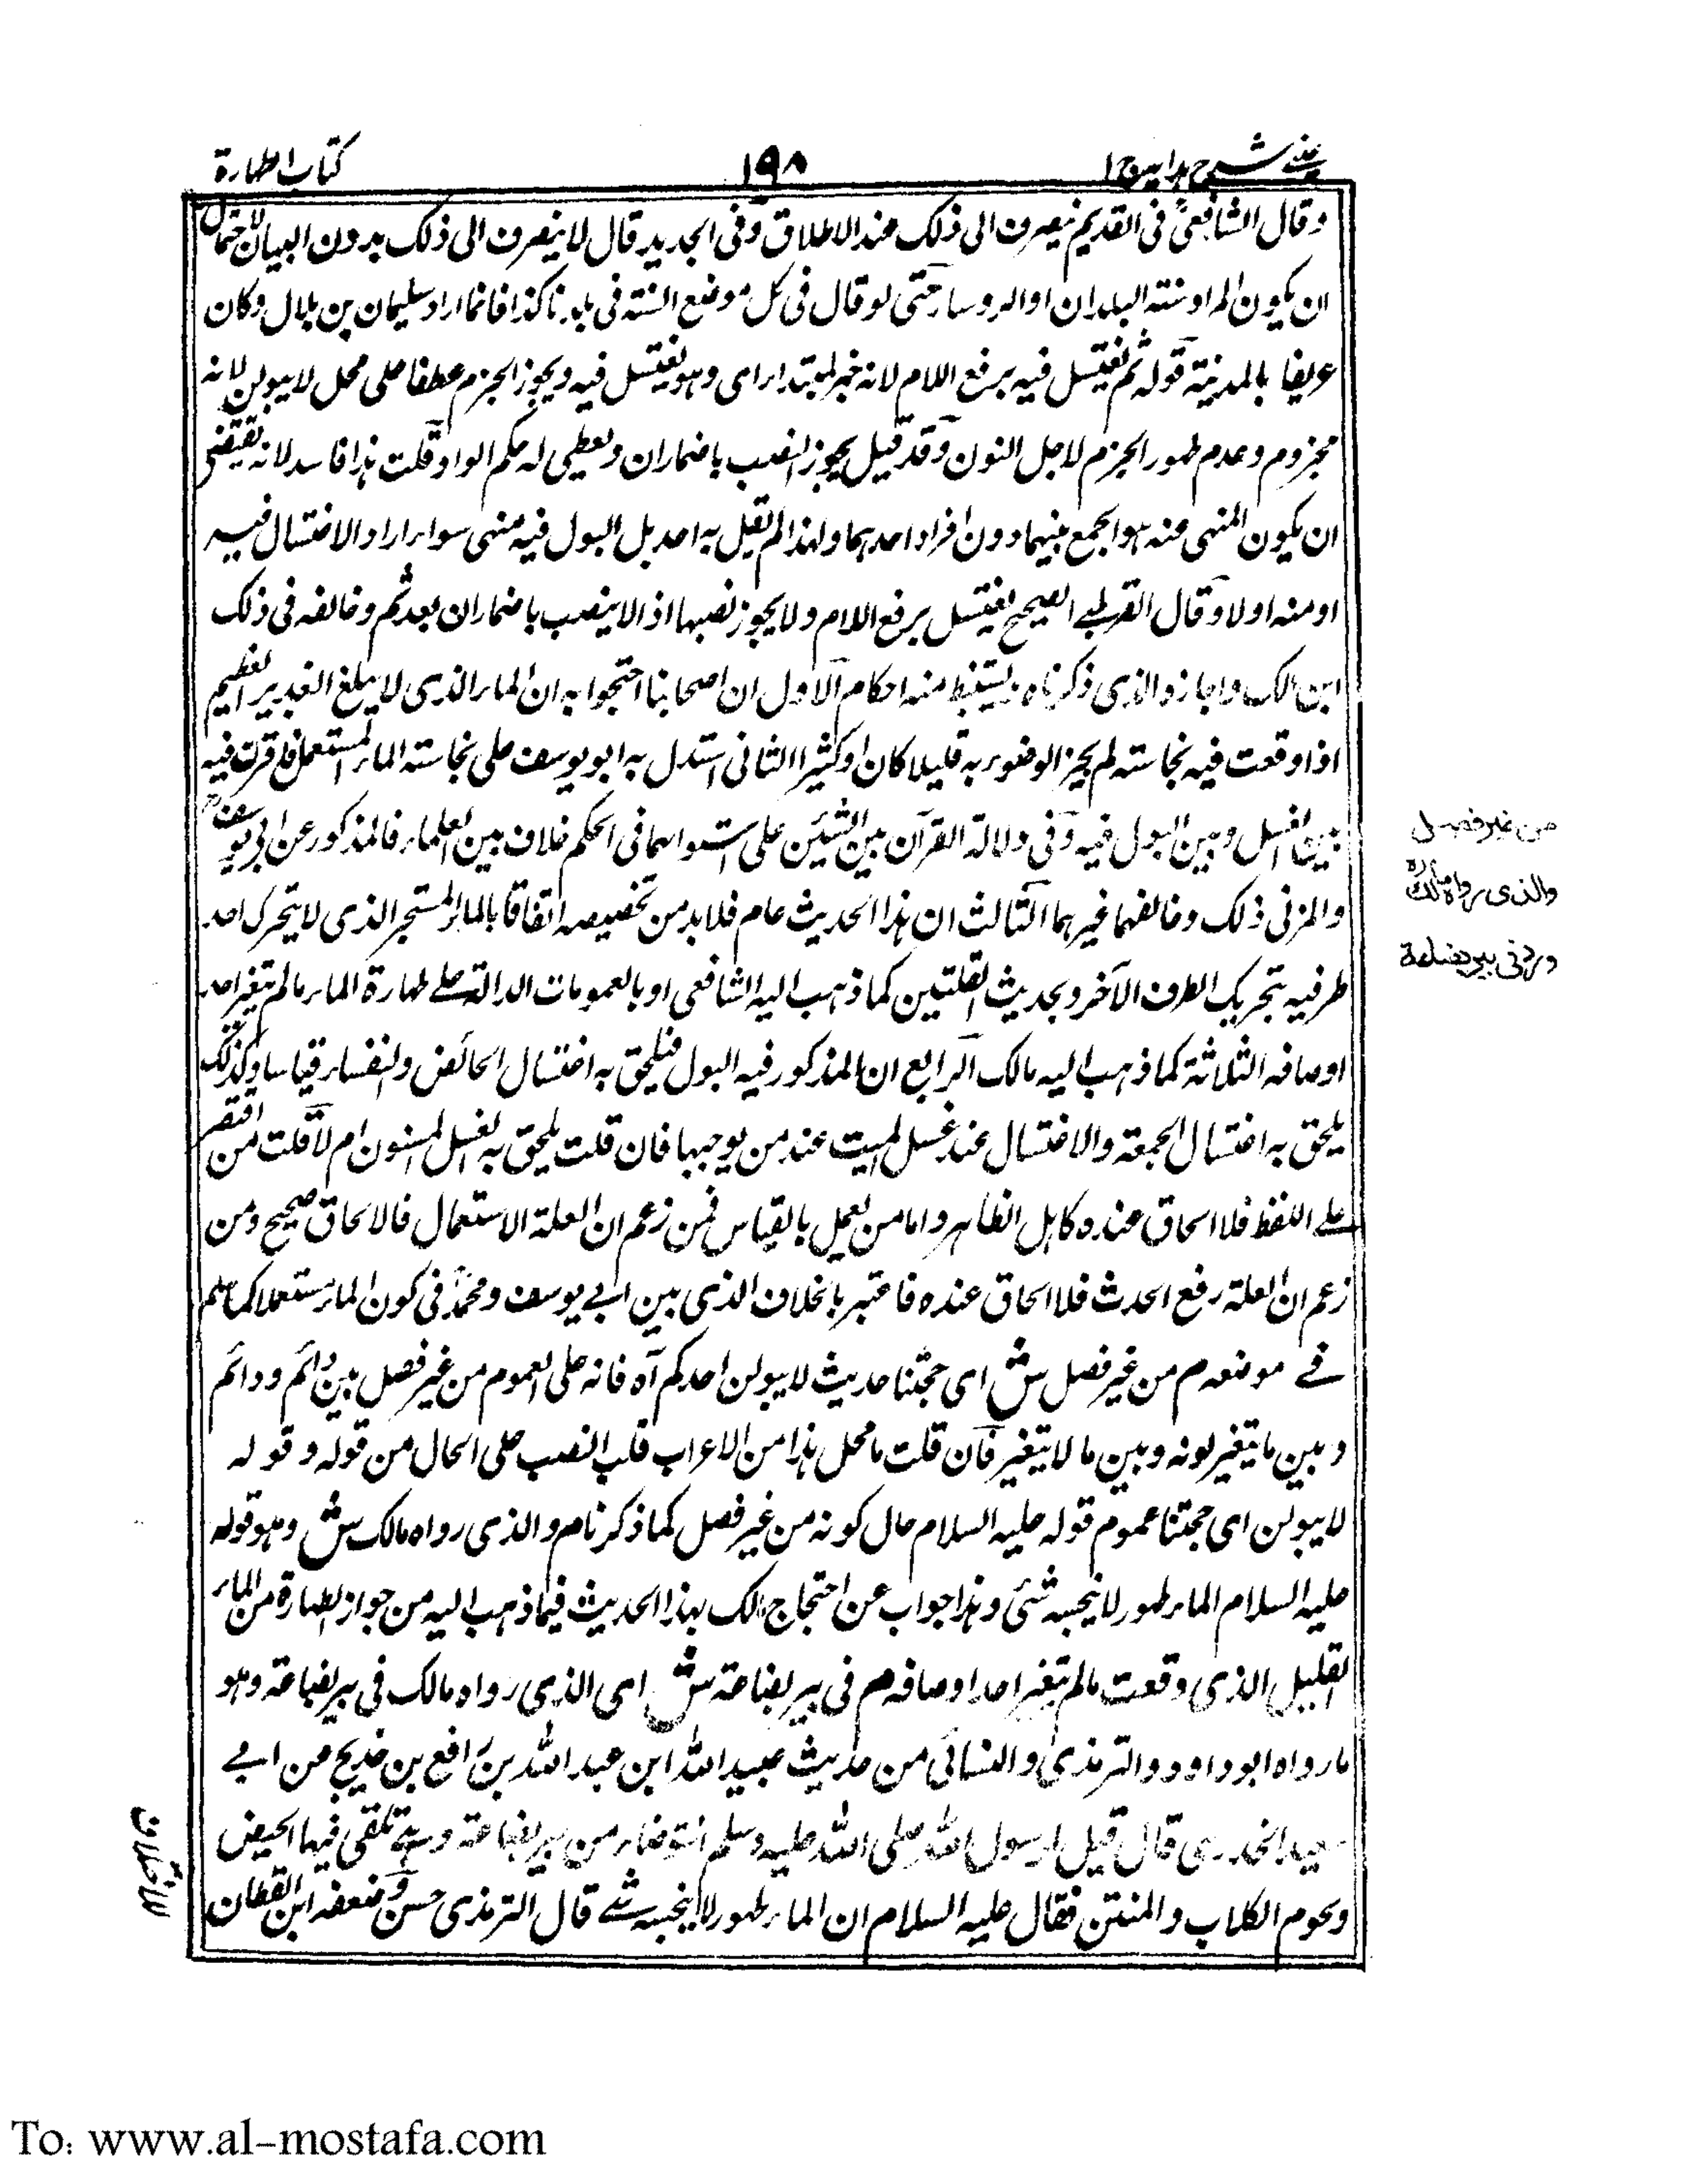 عینی شرح ہدایہ ج ا
١٩٨
کتاب الطهارة
وقال الشافعی فی القدیم ینصرف الی ذلک عند الاطلاق وفی الجدید قال لا ینصرف الی ذلک بدون البیان لاحتمال
ان یکون المراد سنته البلدان او الروساء حتی لو قال فی کل موضع السنة فی بلدنا کذا فانما اراد سلیمان بن بلال وکان
عریفا بالمدینة قوله ثم یغتسل فیه برفع اللام لانه خبر لمبتدا ای وهو یغتسل فیه ویجوز الجزم عطفا علی محل لا یبولن لانه
مجزوم وعدم ظهور الجزم لاجل النون وقد قیل یجوز النصب باضمار ان ویعطی له حکم الواو قلت هذا فاسد لانه یقتضی
ان یکون المنهی عنه هو الجمع بینهما دون افراد احدهما ولهذا لم یقل به احد بل البول فیه منهی سواء اراد الاغتسال فیه
او منه او لا وقال القرطبی الصحیح یغتسل برفع اللام ولا یجوز نصبها اذ لا ینصب باضمار ان بعد ثم وخالفه فی ذلک
ابن مالک واجازه والذی ذکرناه یستنبط منه احکام الاول ان اصحابنا احتجوا به ان الماء الذی لا یبلغ الغدیر العظیم
اذا وقعت فیه نجاسة لم یجز الوضوء به قلیلا کان او کثیرا الثانی استدل به ابو یوسف علی نجاسة الماء المستعمل فقد قرن فیه
بین الغسل وبین البول فیه وفی دلالة القرآن بین الشیئین علی استوائهما فی الحکم خلاف بین العلماء فالمذکور عن ابی یوسف
والمزنی ذلک وخالفهما غیرهما الثالث ان هذا الحدیث عام فلا بد من تخصیصه اتفاقا بالماء المستبحر الذی لا یتحرک احد
طرفیه بتحریک الطرف الآخر وبحدیث القلتین کما ذهب الیه الشافعی او بالعمومات الدالة علی طهارة الماء ما لم یتغیر احد
اوصافه الثلاثة کما ذهب الیه مالک الرابع ان المذکور فیه البول فیلحق به اغتسال الحائض والنفساء قیاسا وکذلک
یلحق به اغتسال الجمعة والاغتسال عند غسل المیت عند من یوجبها فان قلت یلحق به الغسل المسنون ام لا قلت من اقتصر
علی اللفظ فلا الحاق عنده کاهل الظاهر واما من یعمل بالقیاس فمن زعم ان العلة الاستعمال فالالحاق صحیح ومن
زعم ان العلة رفع الحدث فلا الحاق عنده فاعتبر بالخلاف الذی بین ابی یوسف ومحمد فی کون الماء مستعملا کما علم
فی موضعه م من غیر فصل ش ای حجتنا حدیث لا یبولن احدکم آه فانه علی العموم من غیر فصل بین دائم ودائم
وبین ما یتغیر لونه وبین ما لا یتغیر فان قلت ما محل هذا من الاعراب قلت النصب علی الحال من قوله وقوله
لا یبولن ای حجتنا عموم قوله علیه السلام حال کونه من غیر فصل کما ذکرنا م والذی رواه مالک ش وهو قوله
علیه السلام الماء طهور لا ینجسه شئی وهذا جواب عن احتجاج مالک بهذا الحدیث فیما ذهب الیه من جواز الطهارة من الماء
القلیل الذی وقعت ما لم یتغیر احد اوصافه م فی بیر بضاعة ش ای الذی رواه مالک فی بیر بضاعة وهو
ما رواه ابو داود والترمذی والنسائی من حدیث عبید الله ابن عبد الله بن رافع بن خدیج عن ابی
سعید الخدری قال قیل یا رسول الله صلی الله علیه وسلم انتوضاء من بیر بضاعة وهی بیر تلقی فیها الحیض
ولحوم الکلاب والمنتن فقال علیه السلام ان الماء طهور لا ینجسه شئ قال الترمذی حسن وضعفه ابن القطان
من غیر فصل
والذی رواه مالک رہ
ورد فی بیر بضاعة
To: www.al-mostafa.com